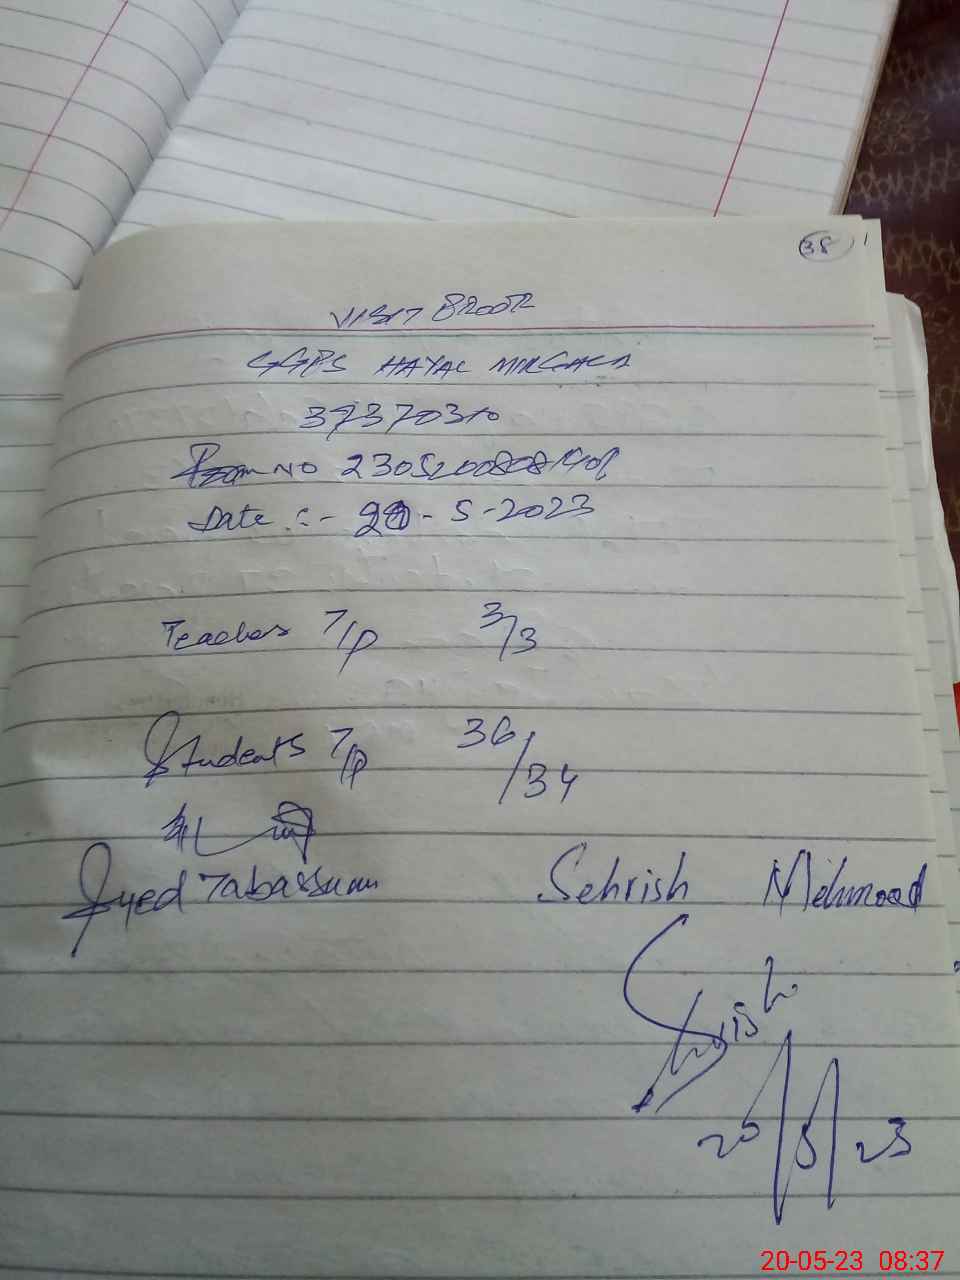 38
VISIT BROOK
GGPS HAYAL
373703
NO
Date :- 20-5-2023
Teachers T/P 3/3
Students T/P 36/34
Syed Tabassum Sehrish Mehmood
Sehrish
20/5/23
20-05-23 08:37